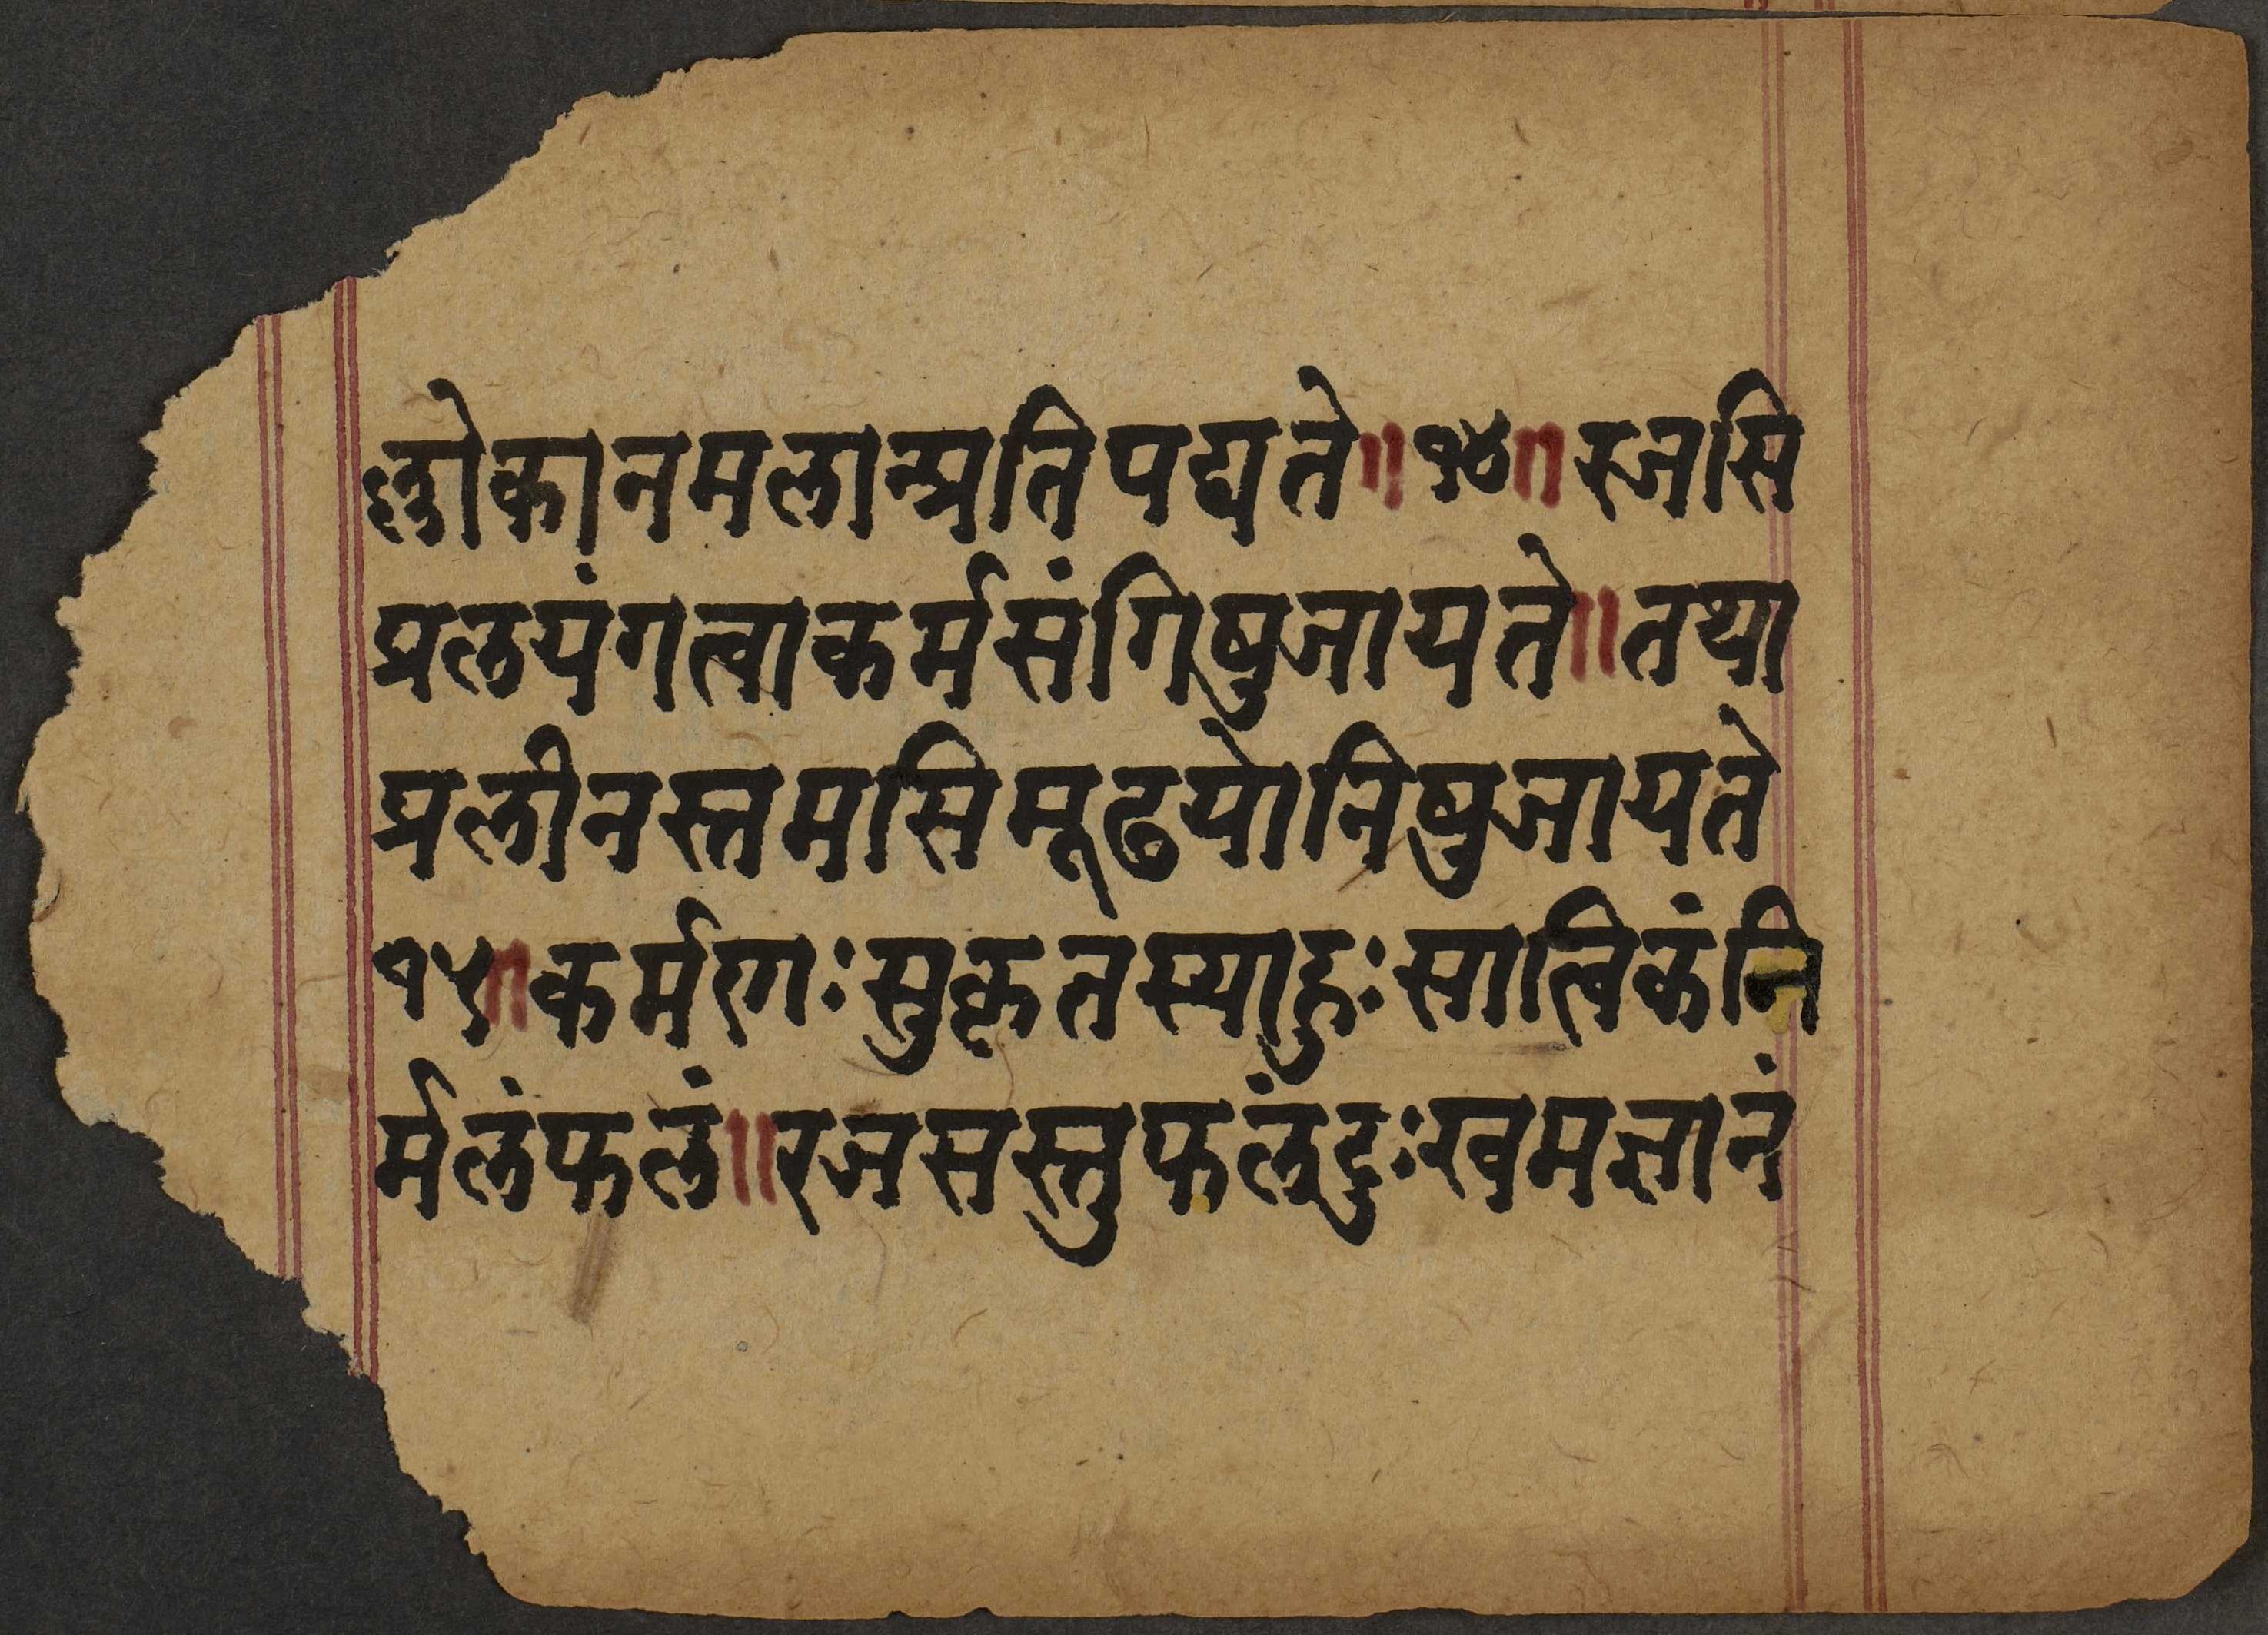 ल्लोकानमलान्प्रतिपद्यते॥१४॥रजसि
प्रलयंगत्वाकर्मसंगिषुजायते॥तथा
प्रलीनस्तमसिमूढयोनिषुजायते
१५॥कर्मणःसुकृतस्याहुःसात्विकंनि
र्मलंफलं॥रजसस्तुफलंदुःखमज्ञानं